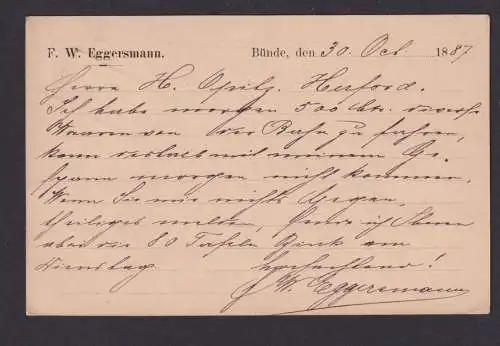 F. W. Eggersmann. Bünde, den 30 Oct 1887
Herrn H. Opitz, Herford.
Ich habe morgen 500 Ctr.
Waaren von der Bahn zu fahren,
kann deshalb mit meinem Ge-
spann morgen nicht kommen.
Wenn Sie mir nichts Gegen-
theiliges melden, sende ich Ihnen
aber die 80 Tafeln Zink am
Dienstag. Hochachtend!
F. W. Eggersmann